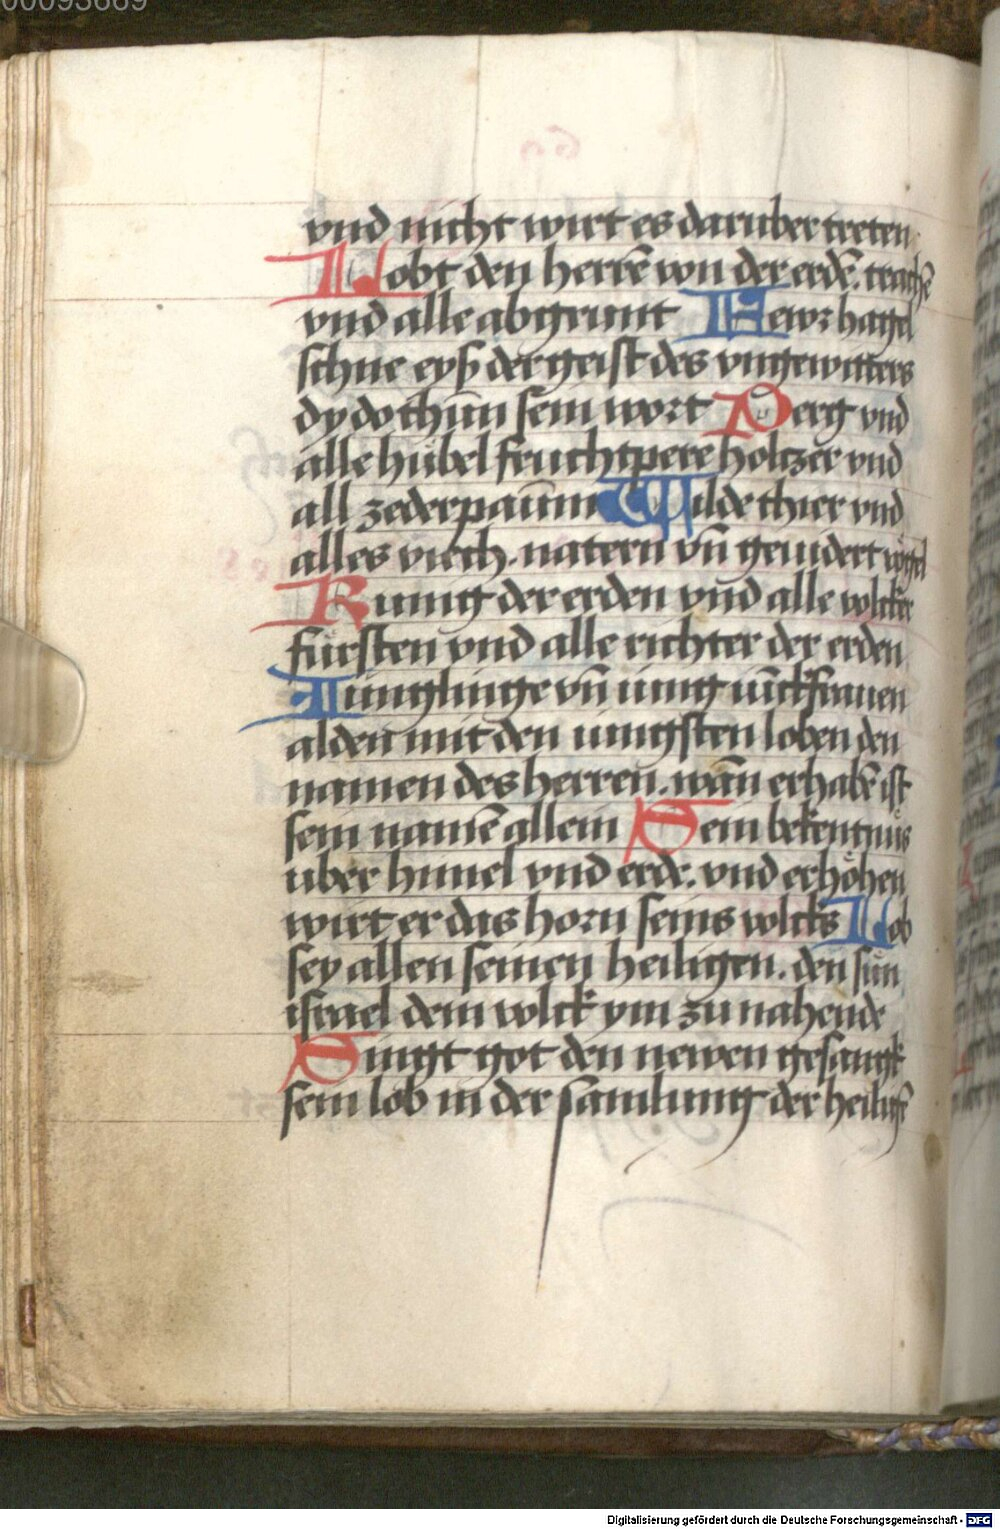 00093669
vnd nicht wirt es daruber treten
Lobt den herrē von der erdē. trachē
vnd alle abgrunt Fewr hagel
schne eyß der geist des vngewitters
dy do thun sein wort Perg vnd
alle hübel fruchtpere holczer vnd
all zederpaum Wilde thier vnd
alles viech. natern vn̄ geuidert vogel
Kunig der erden vnd alle volcker
fürsten vnd alle richter der erden
Jungling vn̄ iung iūckfrauen
alden mit den iungsten loben den
namen des herren. wan erhabē ist
sein namē allein Sein bekentnus
uber himel vnd erde. vnd erhöhen
wirt er das horn seins volcks Lob
sey allen seinen heiligen. den sun
israel dem volck ym zu nahende
Singt got den newen gesangk
sein lob in der samlung der heiligē
Digitalisierung gefördert durch die Deutsche Forschungsgemeinschaft - DFG